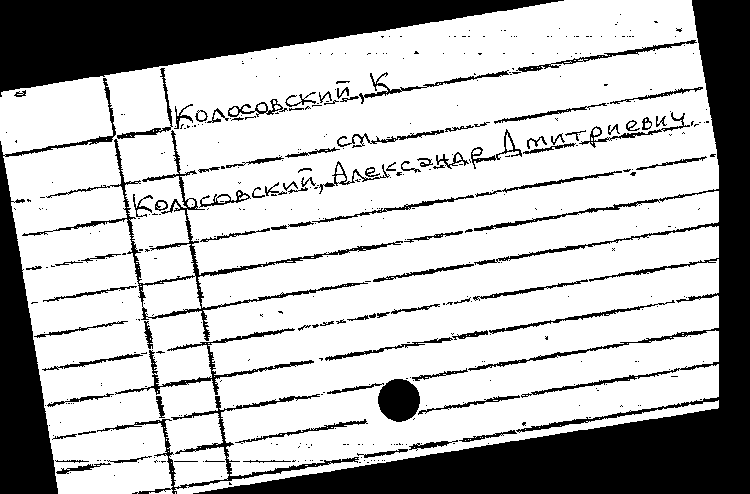 Колосовский, К
см.
Колосовский, Александр Дмитриевич.